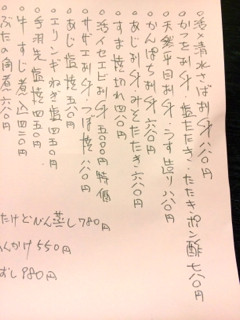 ○活〆清水さば刺身 八八〇円
○かつを刺身 塩たたき・たたき・ポン酢 七八〇円
○天然平目刺身・うす造り 八八〇円
○かんぱち刺身 六八〇円
○あじ刺身・みそたたき 六八〇円
○すま焼切れ 四八〇円
○活イセエビ刺身 五〇〇〇円 特価
○サザエ刺身・つぼ焼 八八〇円
○あじ塩焼 五八〇円
○エリンギねぎ塩 四五〇円
○手羽先塩焼 四五〇円
○牛すじ煮込 四三〇円
ぶたの角煮 六八〇円
たけどびん蒸し 780円
んかけ 550円
むし 980円